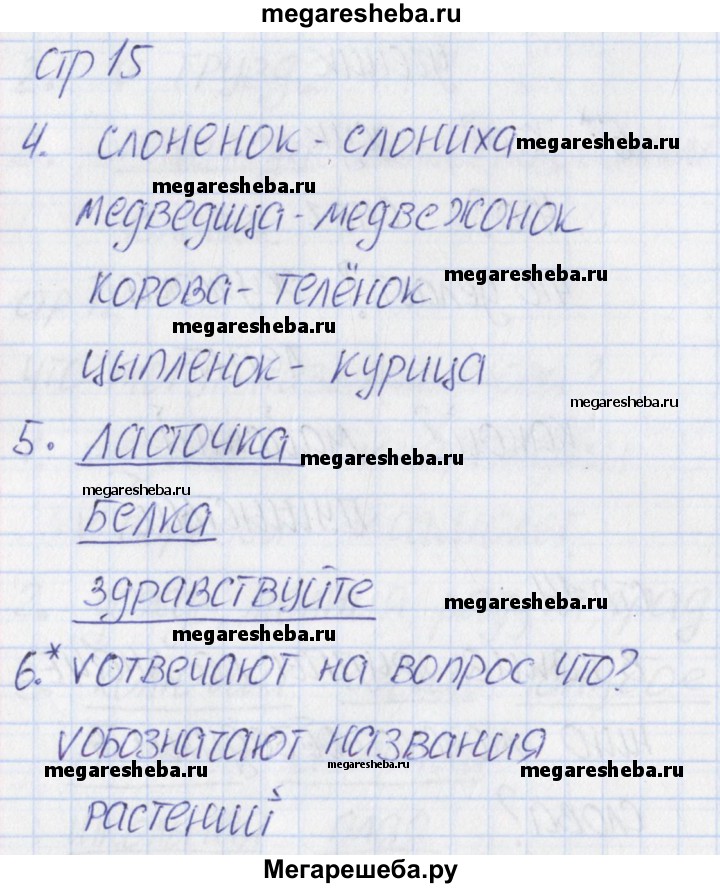 megaresheba.ru
стр 15
4. слоненок - слониха megaresheba.ru
megaresheba.ru
медведица - медвежонок
megaresheba.ru
корова - телёнок
megaresheba.ru
цыпленок - курица
megaresheba.ru
5. ласточка megaresheba.ru
megaresheba.ru
Белка
здравствуйте megaresheba.ru
megaresheba.ru
6.* v отвечают на вопрос что?
v обозначают названия
megaresheba.ru megaresheba.ru megaresheba.ru
растений
Мегарешеба.ру